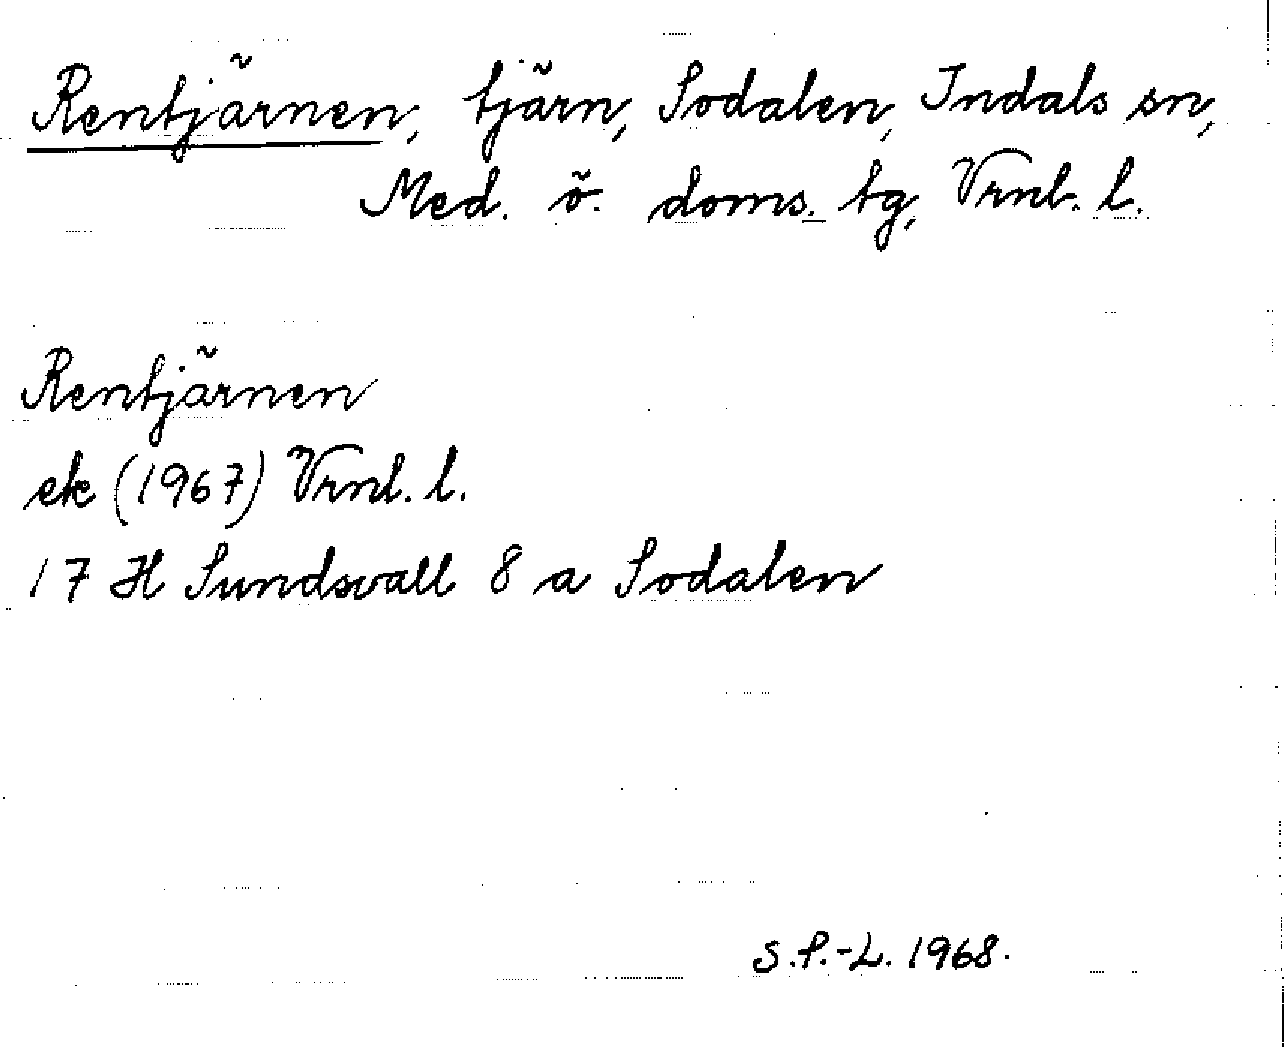 Rentjärnen, tjärn, Sodalen, Indals sn,
Med. ö. doms. tg, Vrnl. l.
Rentjärnen
ek (1967) Vrnl. l.
17 H Sundsvall 8 a Sodalen
S.P.-L. 1968.